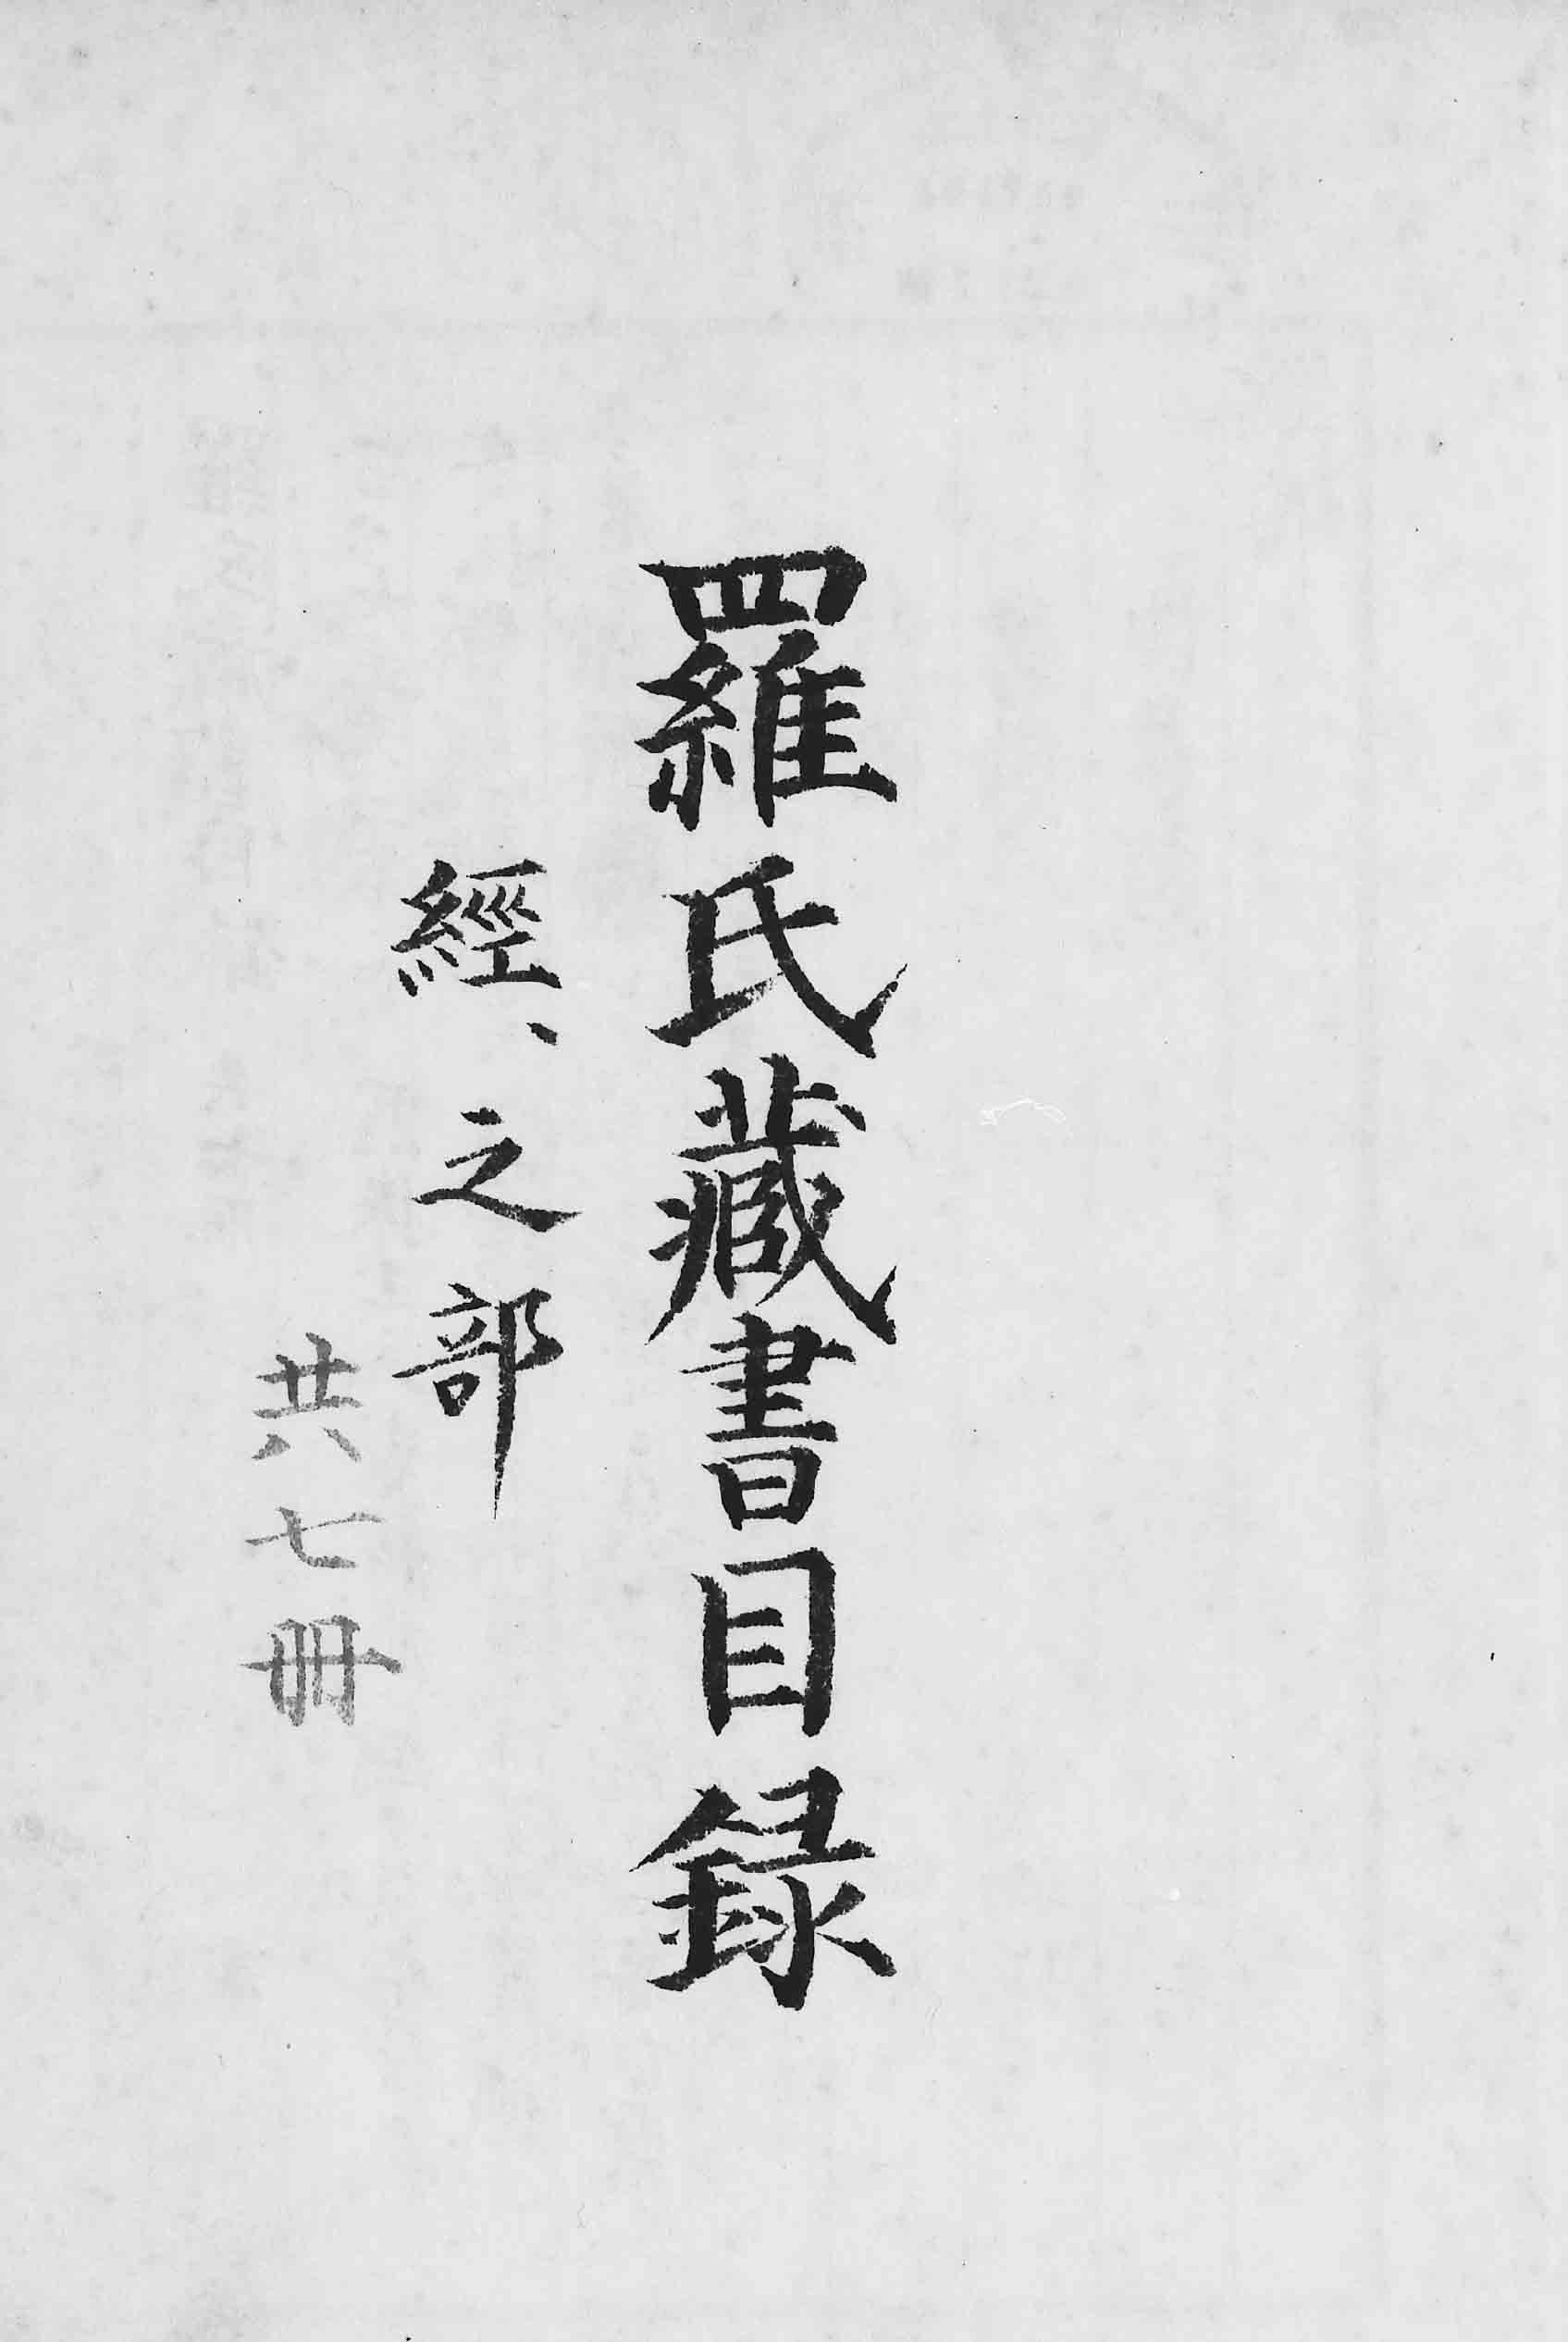 羅氏藏書目録
經、之部
共七冊